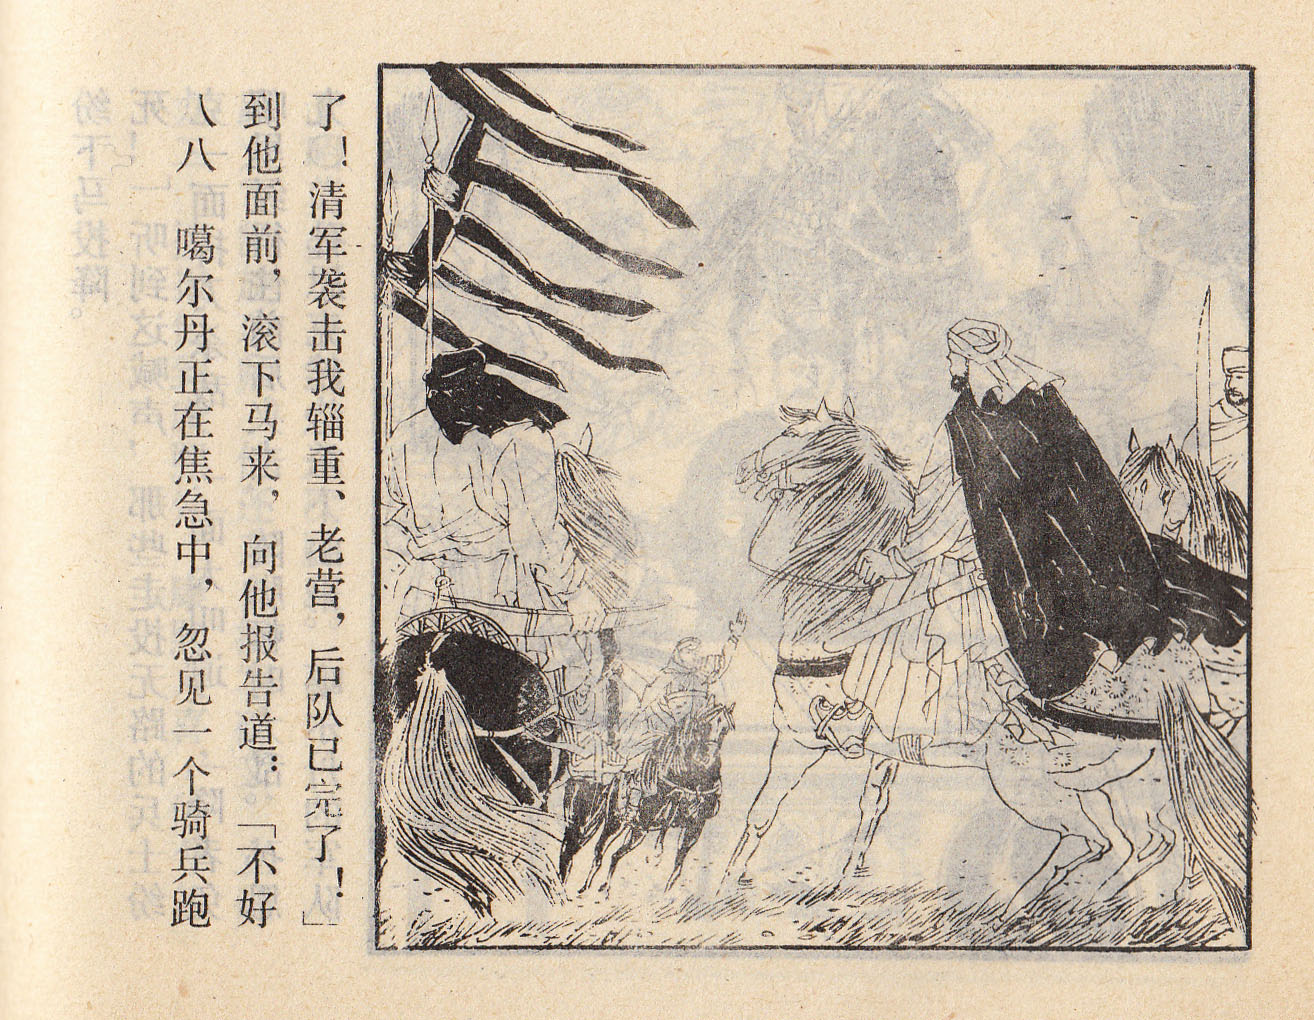 八八 噶尔丹正在焦急中，忽见一个骑兵跑
到他面前，滚下马来，向他报告道：「不好
了！清军袭击我辎重、老营，后队已完了！」